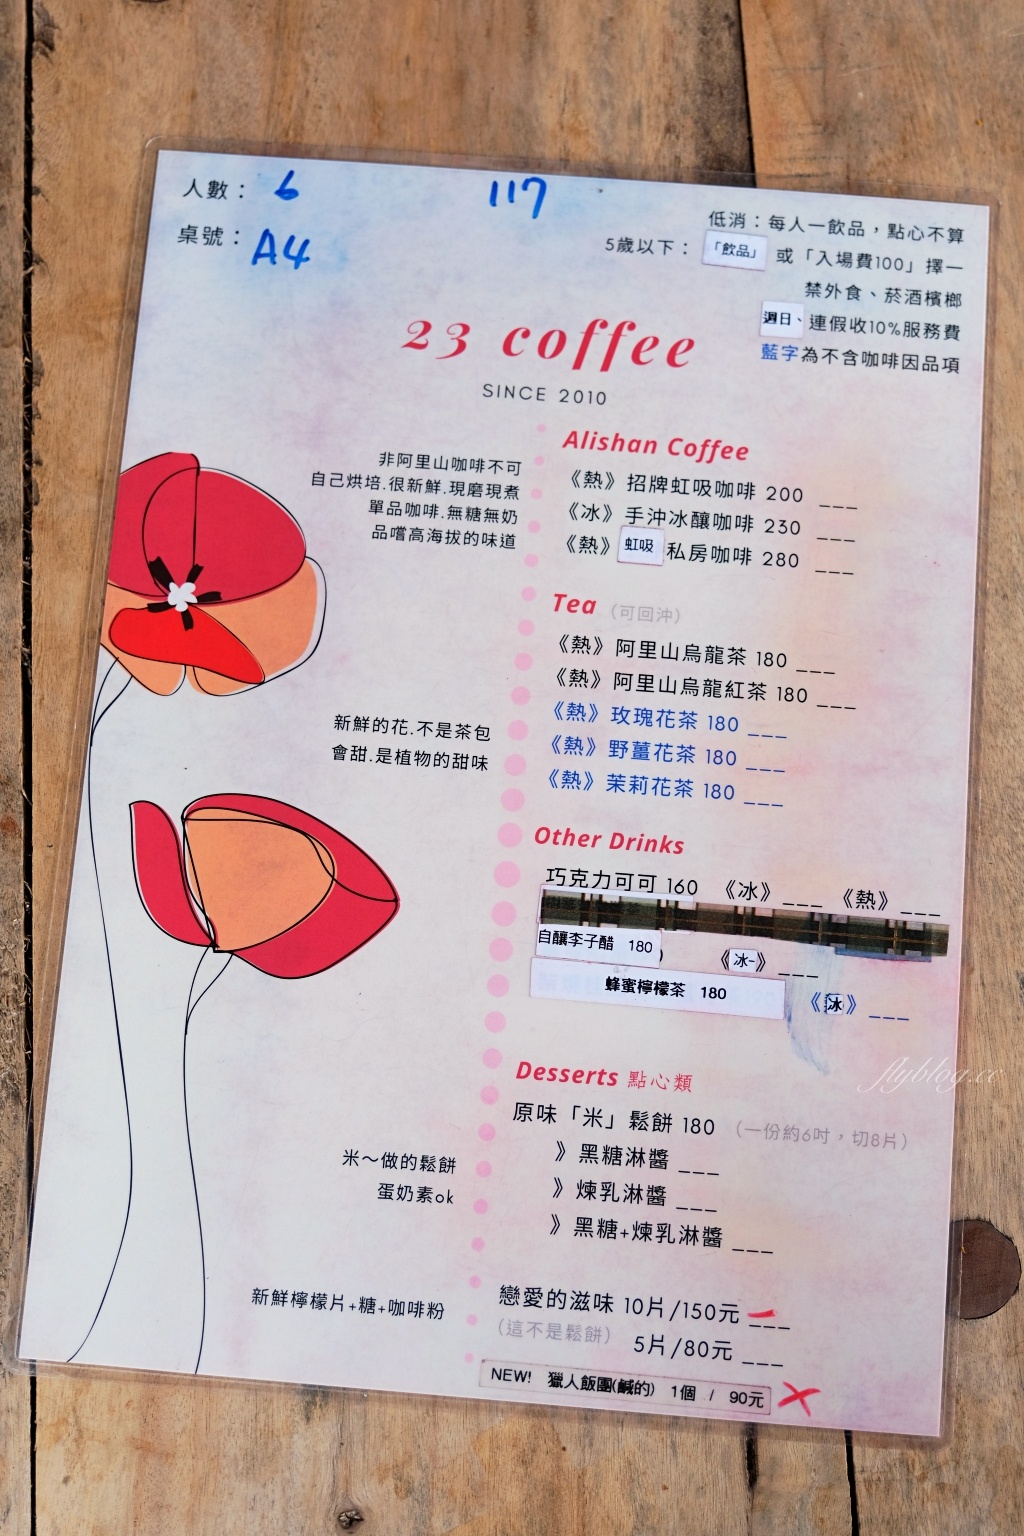 人數： 6
117
桌號： A4
低消：每人一飲品，點心不算
5歲以下：「飲品」或「入場費100」擇一
禁外食、菸酒檳榔
週日、連假收10%服務費
藍字為不含咖啡因品項
23 coffee
SINCE 2010
Alishan Coffee
非阿里山咖啡不可
自己烘培.很新鮮.現磨現煮
單品咖啡.無糖無奶
品嚐高海拔的味道
《熱》招牌虹吸咖啡 200 ___
《冰》手沖冰釀咖啡 230 ___
《熱》虹吸私房咖啡 280 ___
Tea （可回沖）
《熱》阿里山烏龍茶 180 ___
《熱》阿里山烏龍紅茶 180 ___
《熱》玫瑰花茶 180 ___
《熱》野薑花茶 180 ___
《熱》茉莉花茶 180 ___
新鮮的花.不是茶包
會甜.是植物的甜味
Other Drinks
巧克力可可 160 《冰》___ 《熱》___
自釀李子醋 180 《冰-》___
蜂蜜檸檬茶 180 《冰》___
Desserts 點心類
原味「米」鬆餅 180 （一份約6吋，切8片）
》黑糖淋醬 ___
》煉乳淋醬 ___
》黑糖+煉乳淋醬 ___
米～做的鬆餅
蛋奶素ok
新鮮檸檬片+糖+咖啡粉
戀愛的滋味 10片/150元 ___
（這不是鬆餅） 5片/80元 ___
NEW! 獵人飯團(鹹的) 1個 / 90元
flyblog.cc